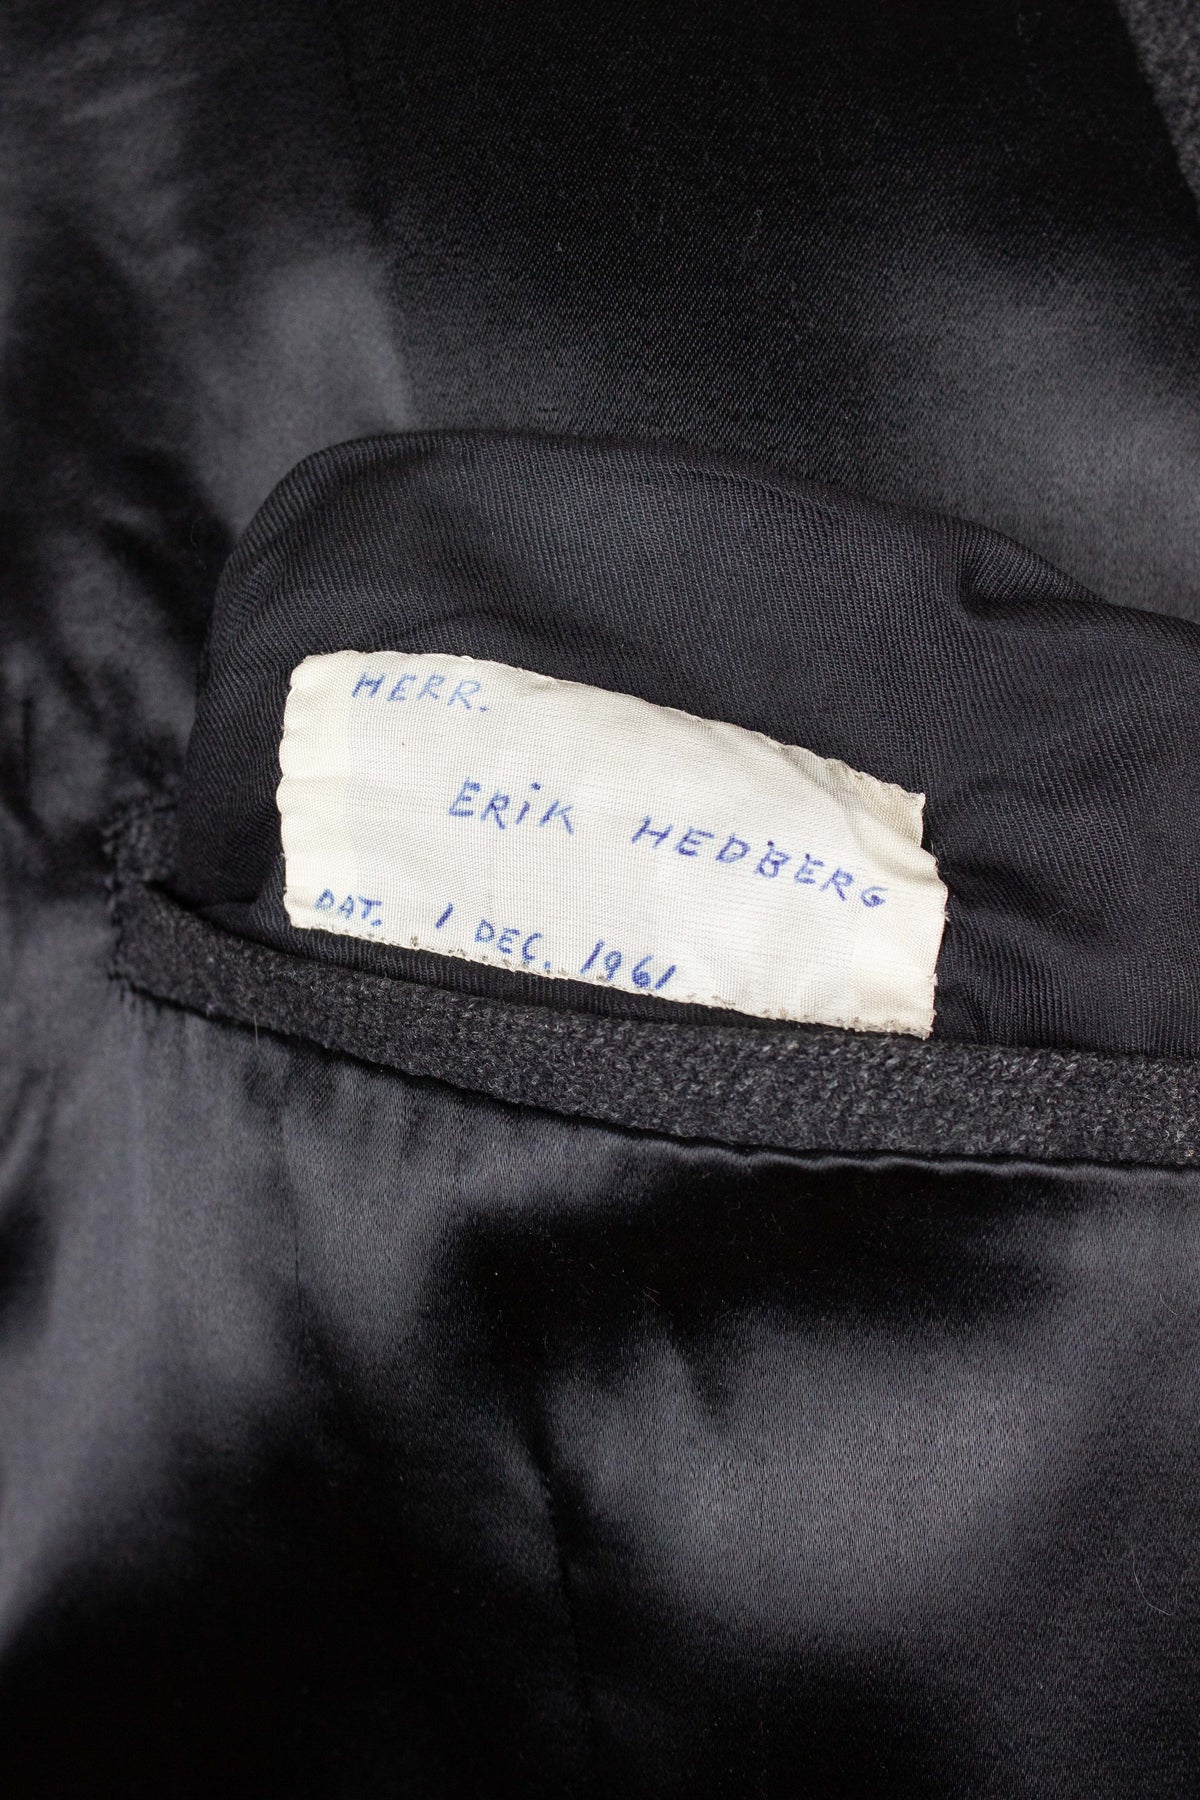 HERR.
ERiK HEDBERG
DAT. 1 DEC. 1961